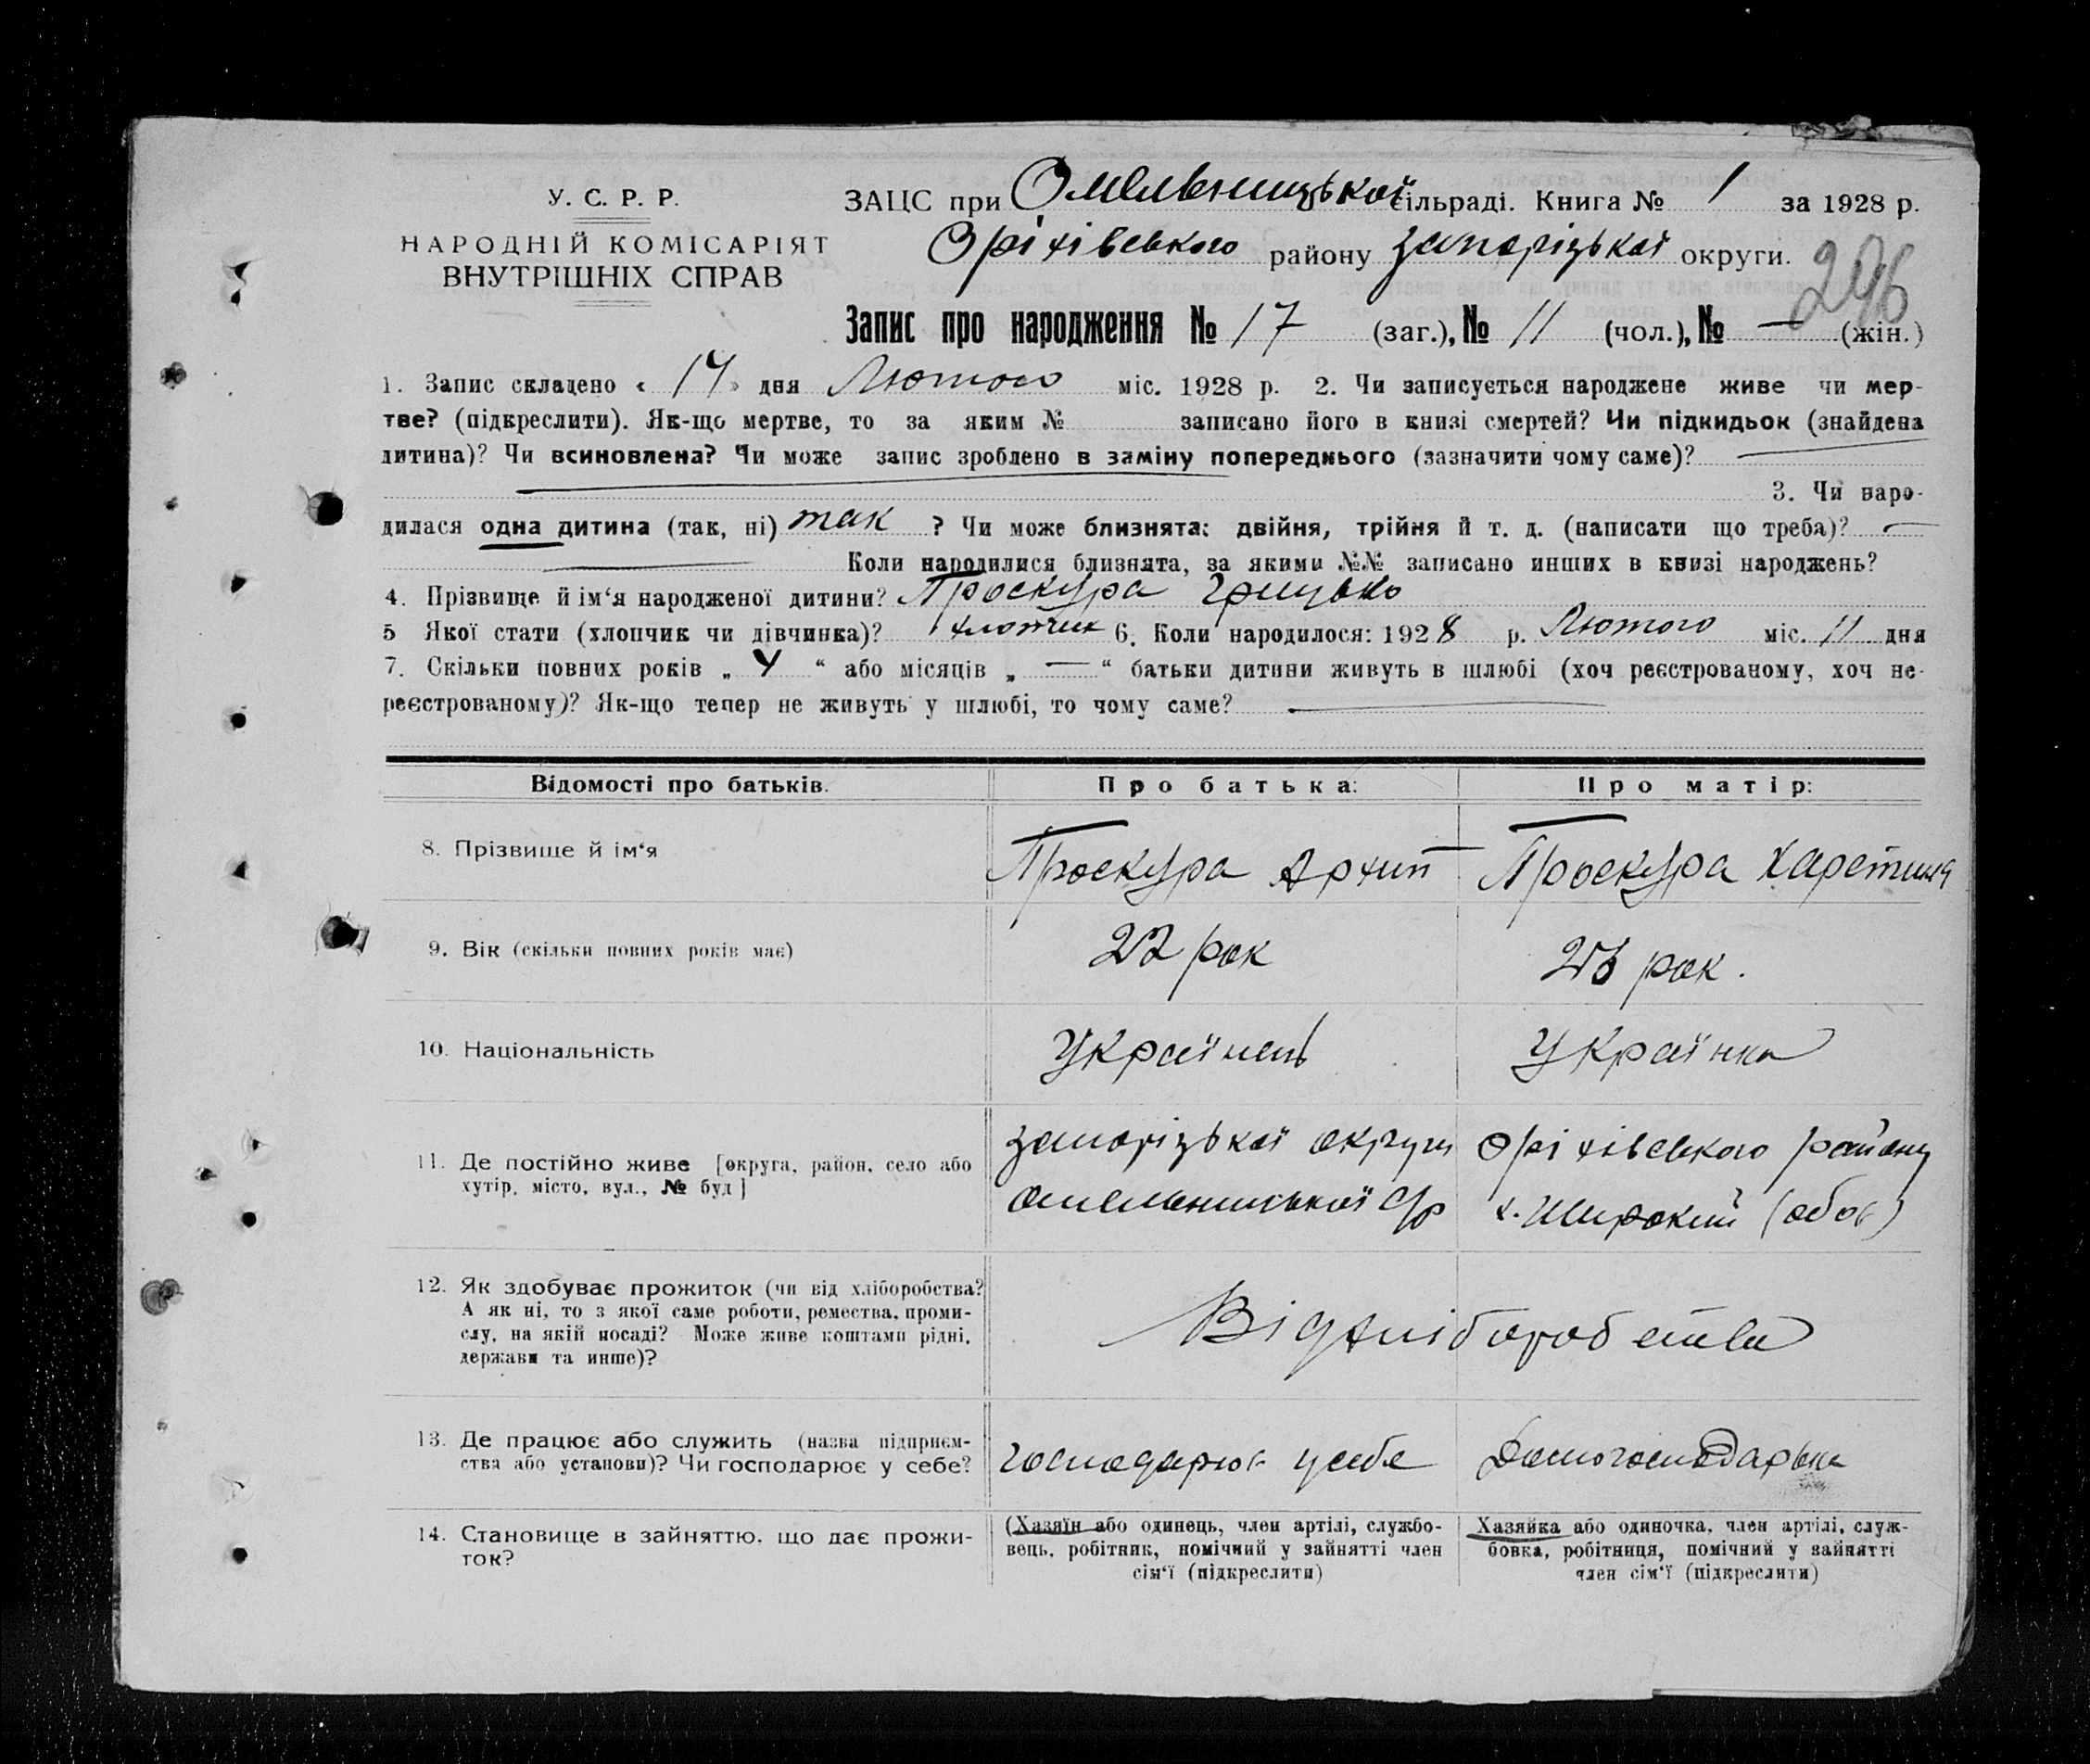 У. С. Р. Р.
НАРОДНІЙ КОМІСАРІЯТ
ВНУТРІШНІХ СПРАВ
ЗАЦС при Омельницької сільраді. Книга № 1 за 1928 р.
Оріхівського району Запорізької округи.
296
Запис про народження № 17 (заг.), № 11 (чол.), № — (жін.)
1. Запис складено « 14 » дня Лютого міс. 1928 р. 2. Чи записується народжене живе чи мер-
тве? (підкреслити). Як-що мертве, то за яким № записано його в книзі смертей? Чи підкидьок (знайдена
дитина)? Чи всиновлена? Чи може запис зроблено в заміну попереднього (зазначити чому саме)? —
— 3. Чи наро-
дилася одна дитина (так, ні) так ? Чи може близнята: двійня, трійня й т. д. (написати що треба)? —
— Коли народилися близнята, за якими №№ записано инших в книзі народжень?
4. Прізвище й ім‘я народженої дитини? Проскура Грицько
5 Якої стати (хлопчик чи дівчинка)? хлопчик 6. Коли народилося: 1928 р. Лютого міс. 11 дня
7. Скільки повних років „ 4 “ або місяців „ — “ батьки дитини живуть в шлюбі (хоч реєстрованому, хоч не-
реєстрованому)? Як-що тепер не живуть у шлюбі, то чому саме? —
Відомості про батьків. Про батька: Про матір:
8. Прізвище й ім‘я Проскура Архип Проскура Харетина
9. Вік (скільки повних років має) 22 рок рок.
10. Національність Українець Українка
11. Де постійно живе [округа, район, село або
хутір, місто, вул., № буд]
Запорізької округи Оріхівського району
Омельницької С/р х. Широкий (обоє)
12. Як здобуває прожиток (чи від хліборобства?
А як ні, то з якої саме роботи, ремества, проми-
слу, на якій посаді? Може живе коштами рідні,
держави та инше)?
Від хліборобства
13. Де працює або служить (назва підприєм-
ства або установи)? Чи господарює у себе?
господарює у себе Домогосподарька
14. Становище в зайняттю, що дає прожи-
ток?
(Хазяїн або одинець, член артілі, службо-
вець, робітник, помічний у зайнятті член
сім‘ї (підкреслити)
Хазяйка або одиночка, член артілі, служ-
бовка, робітниця, помічний у зайнятті
член сім‘ї (підкреслити)